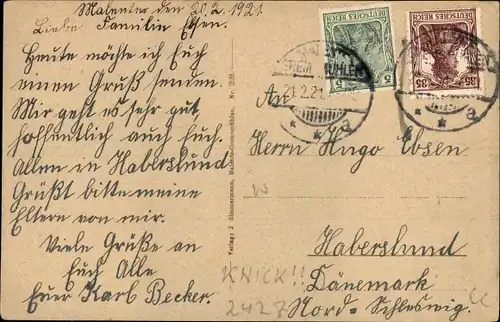 Malente, den 20.2.1921.
Liebe Familie Ebsen.
Heute möchte ich Euch
einen Gruß senden.
Mir geht es sehr gut,
hoffentlich auch Euch.
Allen in Haberslund
Grüßt bitte meine
Eltern von mir.
Viele Grüße an
Euch Alle
Euer Karl Becker.
Verlag: J. Simmermann, Malente-Gremsmühlen. Nr. 209.
DEUTSCHES REICH
5 5
DEUTSCHES REICH
35 35
21.2.21
* * a
* * a
An
Herrn Hugo Ebsen
Haberslund
Dänemark
Nord-Schleswig.
W
KNICK!!
2427